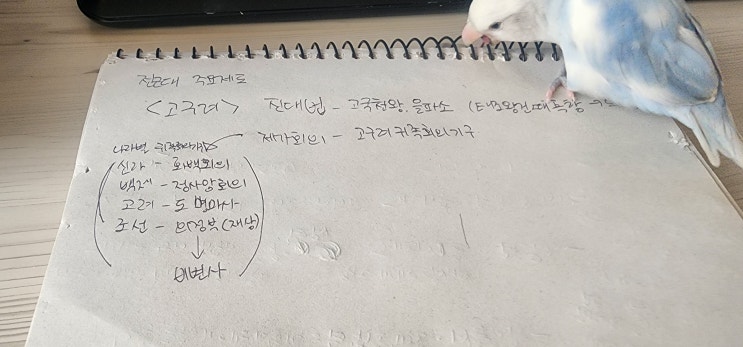 전근대 주요제도
<고구려> 진대법 - 고국천왕, 을파소 (태조왕건때 흑창
제가회의 - 고구려 귀족회의기구
나라별 귀족회의기구
신라 - 화백회의
백제 - 정사암회의
고려 - 도병마사
조선 - 의정부(재상)
↓
비변사